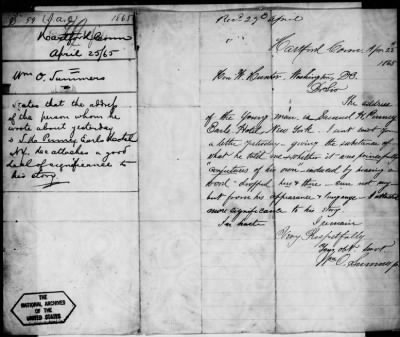 59 (J.a.o.) 1865
Hartford Conn
April 25/65
Wm O. Summers
States that the address
of the person whom he
wrote about yesterday
is Penney Earls Hotel
N.Y. he attaches a good
deal of significance to
his story
THE
NATIONAL ARCHIVES
OF THE
UNITED STATES
Rec'd 27th April
Hartford Conn. Apr. 25th
1865
Hon. W. Hunter, Washington, D.C.
D Sir
The address
of the young man is Samuel H. Penney
Earls Hotel New York. I sent
a letter yesterday giving the substance of
what he told me whether it are principally
conjectures of his own induced by hearing a
word dropped here & there
but from his appearance & language I attached
more significance to his story.
In haste
I remain
Very Respectfully
Your obt Servt
Wm O. Summers